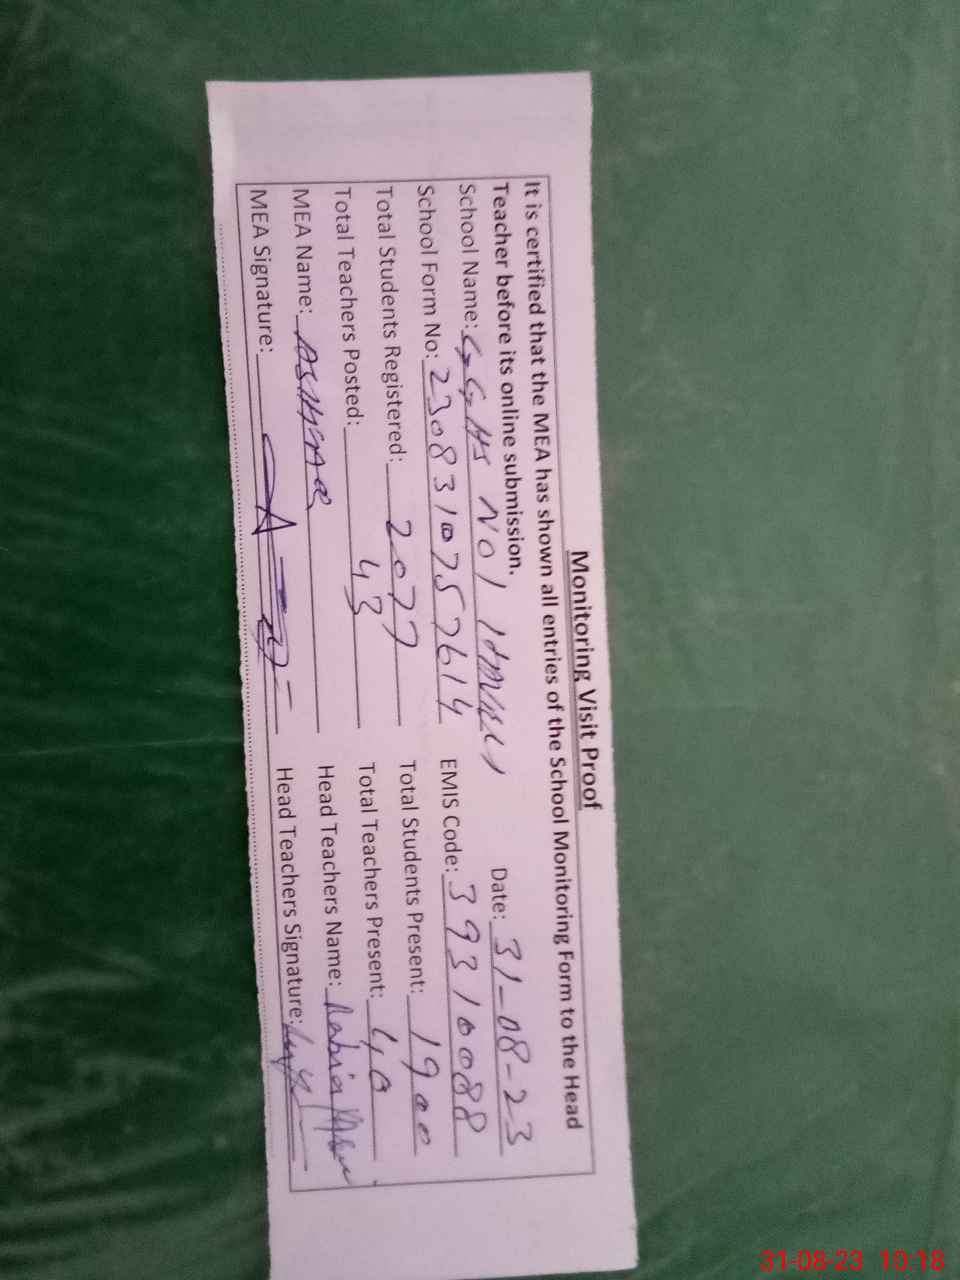 Monitoring Visit Proof
It is certified that the MEA has shown all entries of the School Monitoring Form to the Head
Teacher before its online submission. Date: 31-08-23
School Name: GGHS NO1
School Form No: 2308310757614 EMIS Code: 39310088
Total Students Registered: 2077 Total Students Present: 1900
Total Teachers Posted: 43 Total Teachers Present: 40
MEA Name: Head Teachers Name: Rabia
MEA Signature: Head Teachers Signature:
31-08-23 10:18